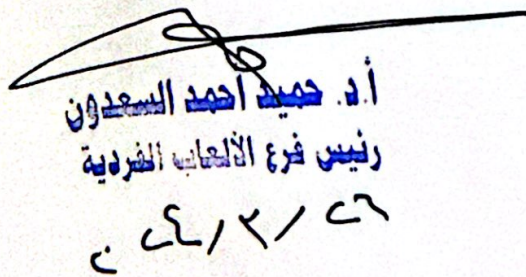 أ.د. حميد احمد السعدون
رئيس فرع الألعاب الفردية
٢٠٢٤/٣/٢٦